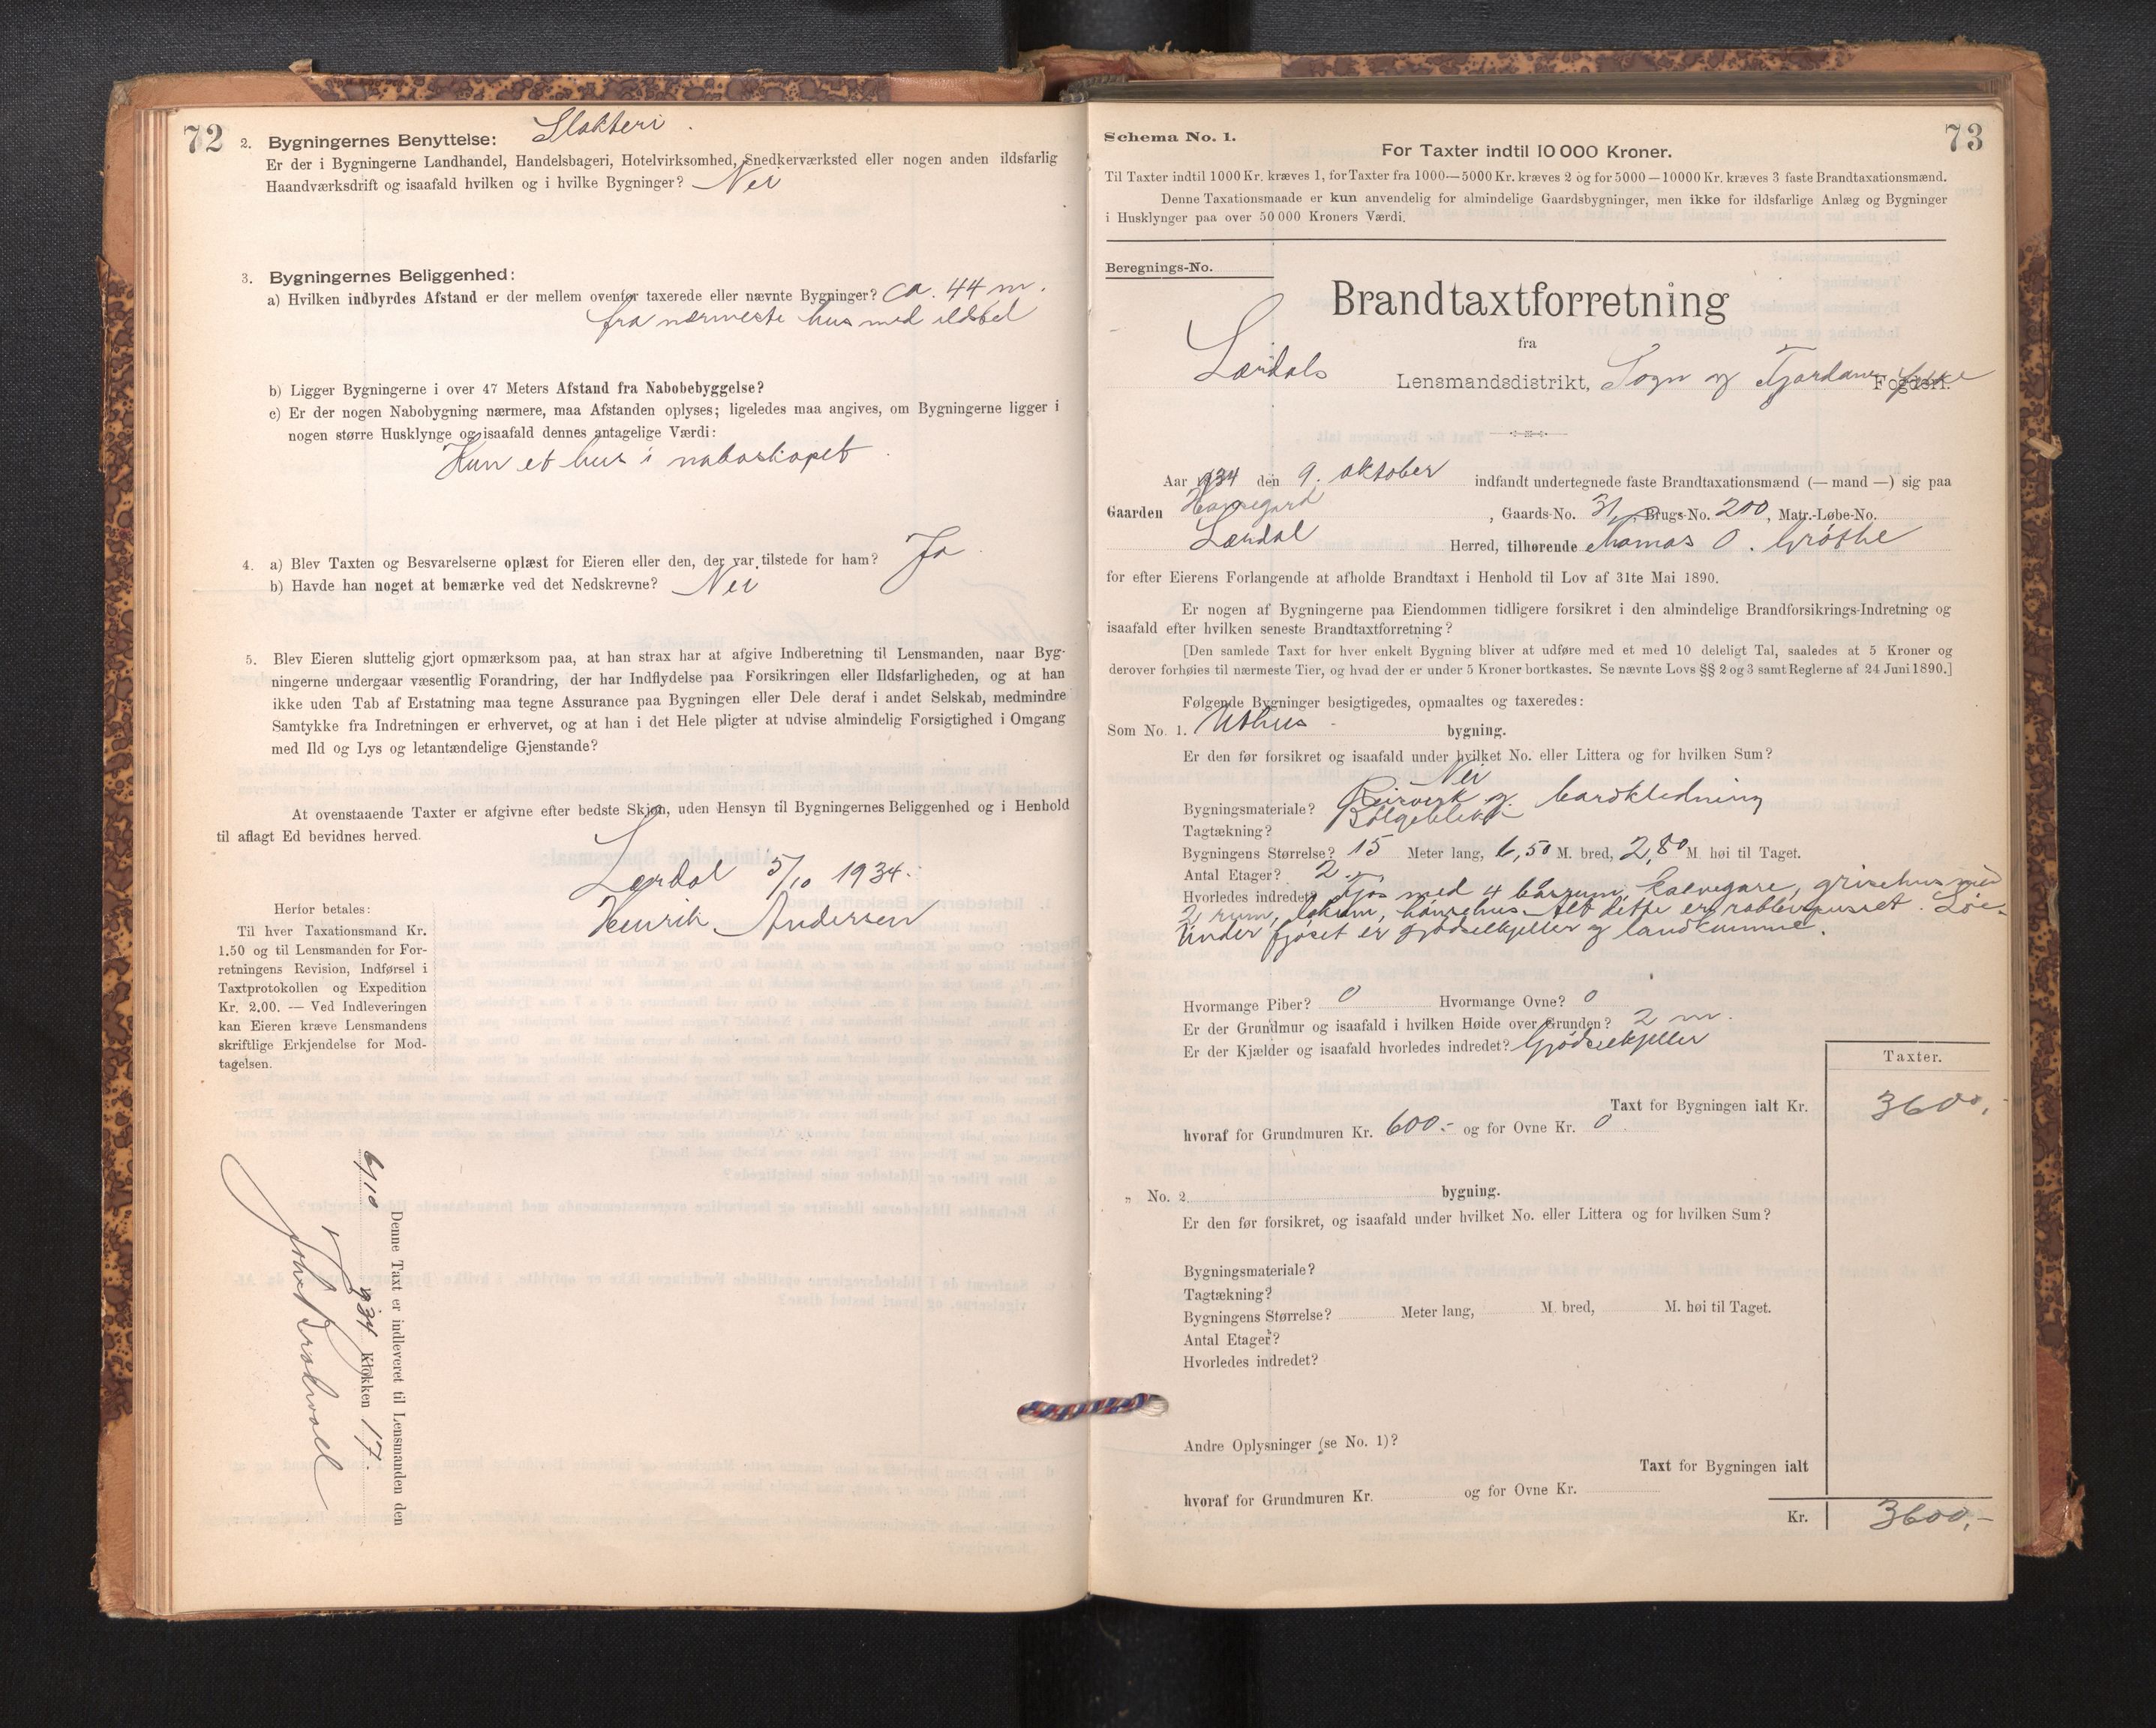 72
2. Bygningernes Benyttelse: Slakteri.
Er der i Bygningerne Landhandel, Handelsbageri, Hotelvirksomhed, Snedkerværksted eller nogen anden ildsfarlig
Haandværksdrift og isaafald hvilken og i hvilke Bygninger? Nei
3. Bygningernes Beliggenhed:
a) Hvilken indbyrdes Afstand er der mellem ovenfor taxerede eller nævnte Bygninger? ca. 44 m.
fra nærmeste hus med ildsted
b) Ligger Bygningerne i over 47 Meters Afstand fra Nabobebyggelse?
c) Er der nogen Nabobygning nærmere, maa Afstanden oplyses; ligeledes maa angives, om Bygningerne ligger i
nogen større Husklynge og isaafald dennes antagelige Værdi:
Kun et hus i naboskapet.
4. a) Blev Taxten og Besvarelserne oplæst for Eieren eller den, der var tilstede for ham? Ja
b) Havde han noget at bemærke ved det Nedskrevne? Nei
5. Blev Eieren sluttelig gjort opmærksom paa, at han strax har at afgive Indberetning til Lensmanden, naar Byg-
ningerne undergaar væsentlig Forandring, der har Indflydelse paa Forsikringen eller Ildsfarligheden, og at han
ikke uden Tab af Erstatning maa tegne Assurance paa Bygningen eller Dele deraf i andet Selskab, medmindre
Samtykke fra Indretningen er erhvervet, og at han i det Hele pligter at udvise almindelig Forsigtighed i Omgang
med Ild og Lys og letantændelige Gjenstande?
At ovenstaaende Taxter er afgivne efter bedste Skjøn, uden Hensyn til Bygningernes Beliggenhed og i Henhold
til aflagt Ed bevidnes herved.
Lærdal 5/10 1934.
Henrik Andersen
Herfor betales:
Til hver Taxationsmand Kr.
1.50 og til Lensmanden for For-
retningens Revision, Indførsel i
Taxtprotokollen og Expedition
Kr. 2.00. — Ved Indleveringen
kan Eieren kræve Lensmandens
skriftlige Erkjendelse for Mod-
tagelsen.
Denne Taxt er indleveret til Lensmanden den
6/10 1934 Klokken 17.
73
Schema No. 1.
For Taxter indtil 10 000 Kroner.
Til Taxter indtil 1000 Kr. kræves 1, for Taxter fra 1000—5000 Kr. kræves 2 og for 5000—10000 Kr. kræves 3 faste Brandtaxationsmænd.
Denne Taxationsmaade er kun anvendelig for almindelige Gaardsbygninger, men ikke for ildsfarlige Anlæg og Bygninger
i Husklynger paa over 50 000 Kroners Værdi.
Beregnings-No.
Brandtaxtforretning
fra
Lærdals Lensmandsdistrikt, Sogn og Fjordane Fogderi. fylke
Aar 1934 den 9. oktober indfandt undertegnede faste Brandtaxationsmænd (— mand —) sig paa
Gaarden Hauegard, Gaards-No. 31, Brugs-No. 200, Matr.-Løbe-No.
Lærdal Herred, tilhørende Thomas O. Grøthe
for efter Eierens Forlangende at afholde Brandtaxt i Henhold til Lov af 31te Mai 1890.
Er nogen af Bygningerne paa Eiendommen tidligere forsikret i den almindelige Brandforsikrings-Indretning og
isaafald efter hvilken seneste Brandtaxtforretning?
[Den samlede Taxt for hver enkelt Bygning bliver at udføre med et med 10 deleligt Tal, saaledes at 5 Kroner og
derover forhøies til nærmeste Tier, og hvad der er under 5 Kroner bortkastes. Se nævnte Lovs §§ 2 og 3 samt Reglerne af 24 Juni 1890.]
Følgende Bygninger besigtigedes, opmaaltes og taxeredes:
Som No. 1. Uthus bygning.
Er den før forsikret og isaafald under hvilket No. eller Littera og for hvilken Sum?
Nei
Bygningsmateriale? Reisverk og bordkledning
Tagtækning? Bølgeblikk
Bygningens Størrelse? 15 Meter lang, 6,50 M. bred, 2,80 M høi til Taget.
Antal Etager? 2.
Hvorledes indredet? Fjøs med 4 båsrum, kalvegare, grisehus med
2 rum, lokum, hønsehus. Alt dette er rabbitspusset. Løe.
Under fjøset er gjødselkjeller og landkumme.
Hvormange Piber? 0 Hvormange Ovne? 0
Er der Grundmur og isaafald i hvilken Høide over Grunden? 2 m.
Er der Kjælder og isaafald hvorledes indredet? Gjødselkjeller
Taxter.
Taxt for Bygningen ialt Kr. 3600,-
hvoraf for Grundmuren Kr. 600.- og for Ovne Kr. 0.
„ No. 2 bygning.
Er den før forsikret, og isaafald under hvilket No. eller Littera og for hvilken Sum?
Bygningsmateriale?
Tagtækning?
Bygningens Størrelse? Meter lang, M. bred, M. høi til Taget.
Antal Etager?
Hvorledes indredet?
Andre Oplysninger (se No. 1)?
Taxt for Bygningen ialt
hvoraf for Grundmuren Kr. og for Ovne Kr.
Kr. 3600,-